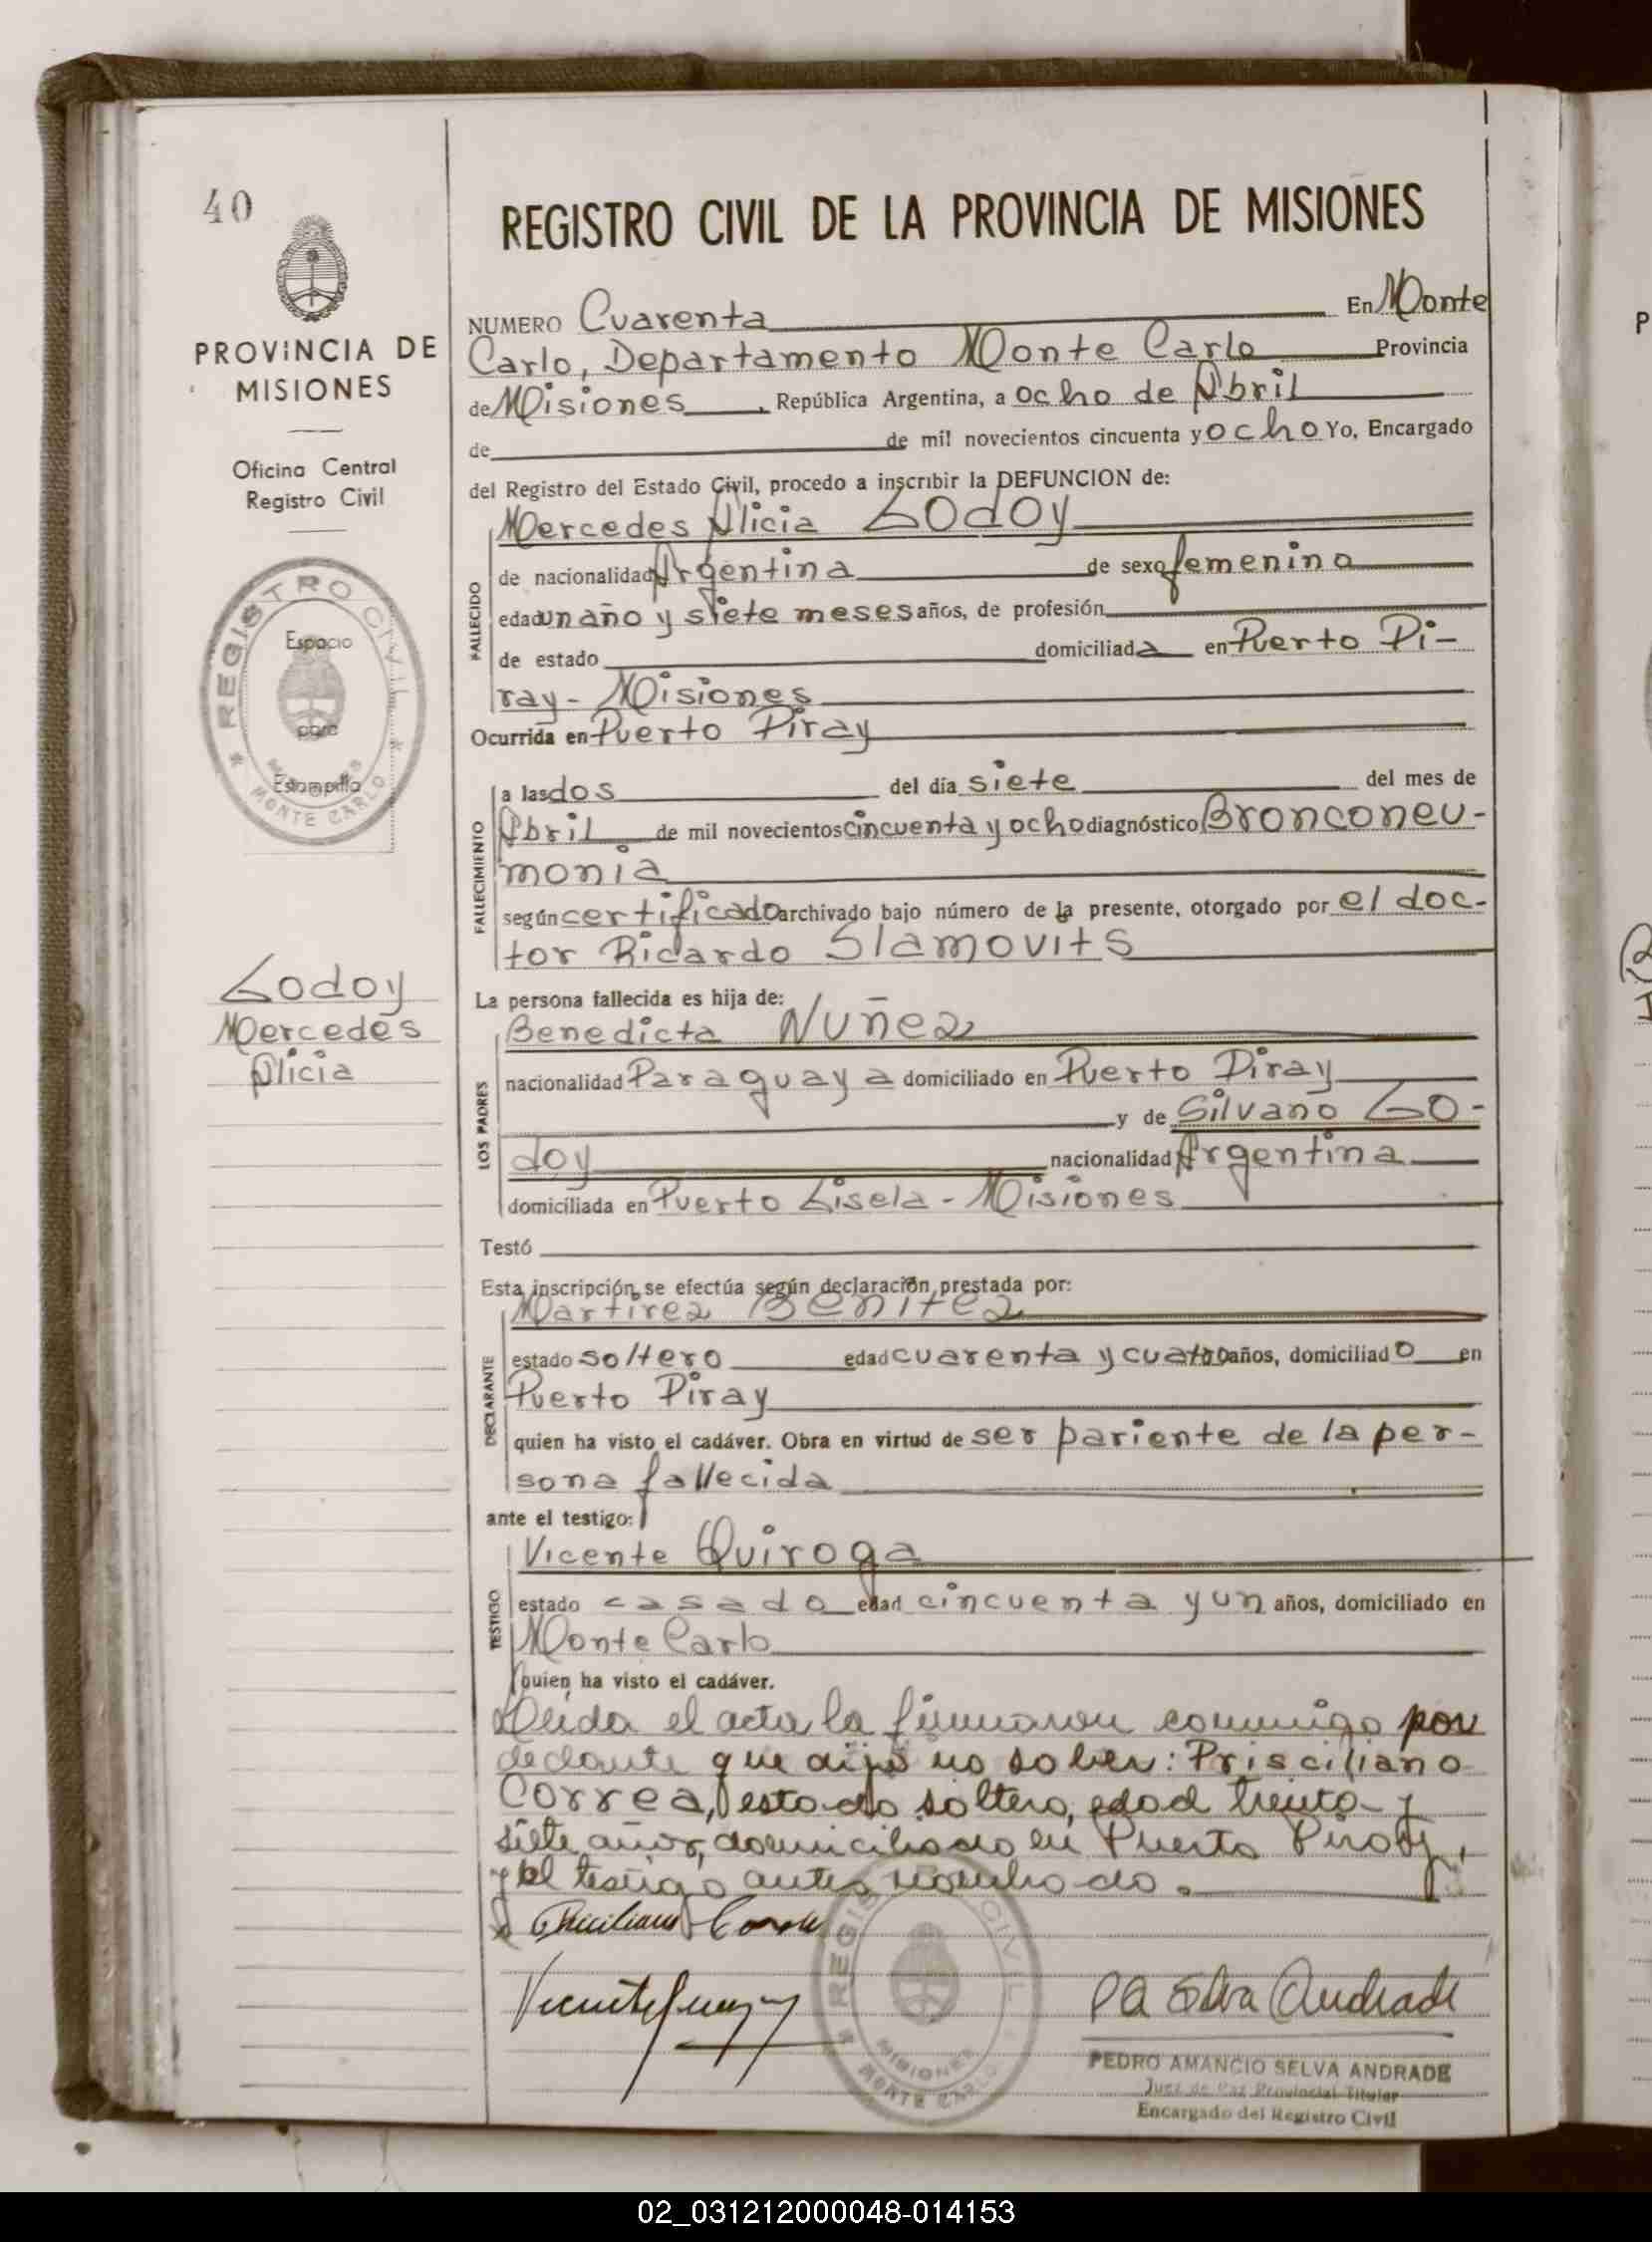 40
PROVINCIA DE
MISIONES
Oficina Central
Registro Civil
REGISTRO CIVIL
Espacio
para
Estampilla
MISIONES
MONTE CARLO
Godoy
Mercedes
Alicia
REGISTRO CIVIL DE LA PROVINCIA DE MISIONES
NUMERO Cuarenta En Monte
Carlo, Departamento Monte Carlo Provincia
de Misiones, República Argentina, a ocho de Abril
de de mil novecientos cincuenta y ocho Yo, Encargado
del Registro del Estado Civil, procedo a inscribir la DEFUNCION de:
Mercedes Alicia Godoy
FALLECIDO
de nacionalidad Argentina de sexo femenino
edad un año y siete meses años, de profesión
de estado domiciliada en Puerto Pi-
ray - Misiones
Ocurrida en Puerto Piray
FALLECIMIENTO
a las dos del día siete del mes de
Abril de mil novecientos cincuenta y ocho diagnóstico Bronconeu-
monia
según certificado archivado bajo número de la presente, otorgado por el doc-
tor Ricardo Slamovits
La persona fallecida es hija de:
LOS PADRES
Benedicta Nuñez
nacionalidad Paraguaya domiciliado en Puerto Piray
y de Silvano Go-
doy nacionalidad Argentina
domiciliada en Puerto Gisela - Misiones
Testó
Esta inscripción se efectúa según declaración prestada por:
DECLARANTE
Martirez Benitez
estado soltero edad cuarenta y cuatro años, domiciliado en
Puerto Piray
quien ha visto el cadáver. Obra en virtud de ser pariente de la per-
sona fallecida
ante el testigo:
TESTIGO
Vicente Quiroga
estado casado edad cincuenta y un años, domiciliado en
Monte Carlo
quien ha visto el cadáver.
Leida el acta la firmaron conmigo por
declarante que dijo no saber: Prisciliano
Correa, estado soltero, edad treinta y
siete años, domiciliado en Puerto Piray,
y el testigo antes nombrado.
Prisciliano Correa
Vicente Quiroga
REGISTRO CIVIL
MISIONES
MONTE CARLO
P A Selva Andrade
PEDRO AMANCIO SELVA ANDRADE
Juez de Paz Provincial Titular
Encargado del Registro Civil
02_031212000048-014153